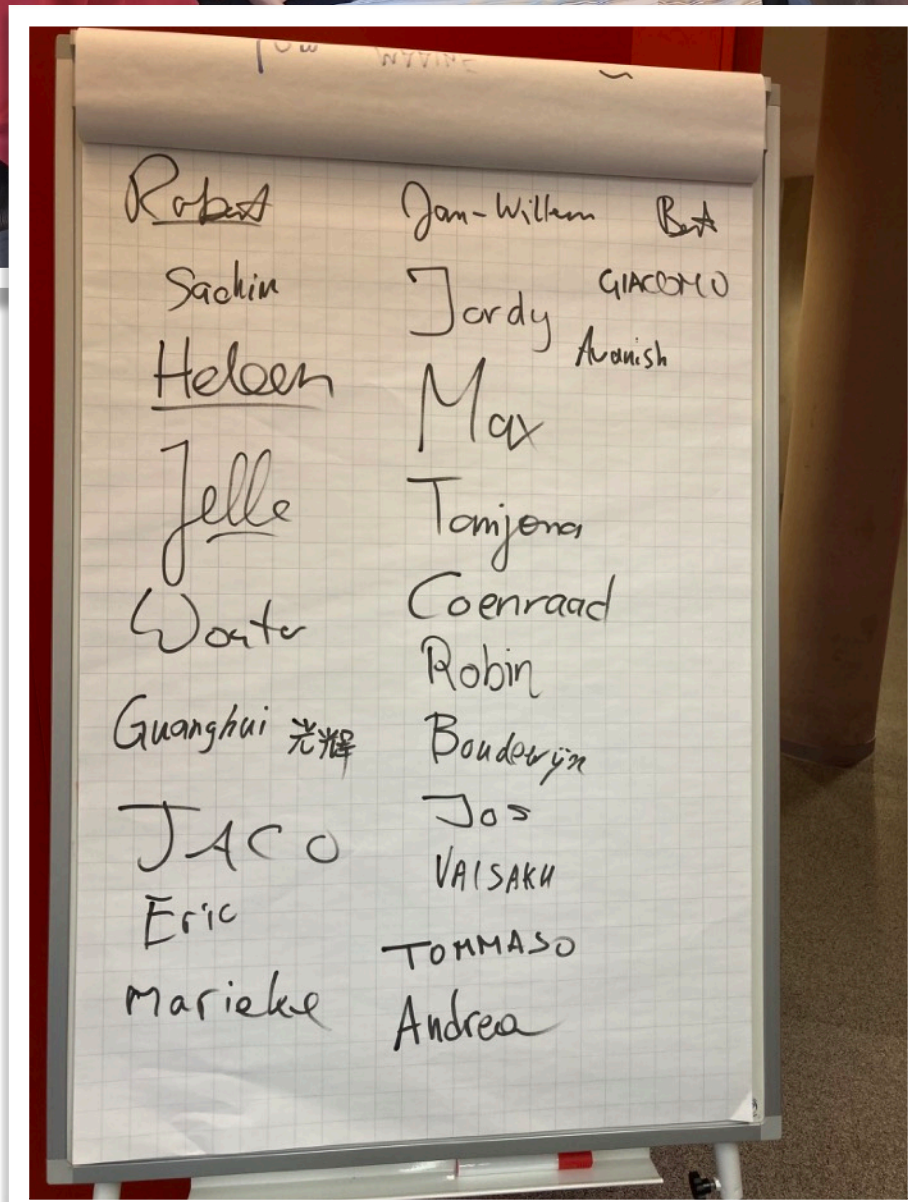 Robert
Sachin
Heleen
Jelle
Wouter
Guanghui 光辉
JACO
Eric
Marieke
Jan-Willem
Jordy
Max
Tanijona
Coenraad
Robin
Boudewijn
Jos
VAISAKH
TOMMASO
Andrea
Bert
GIACOMO
Avanish